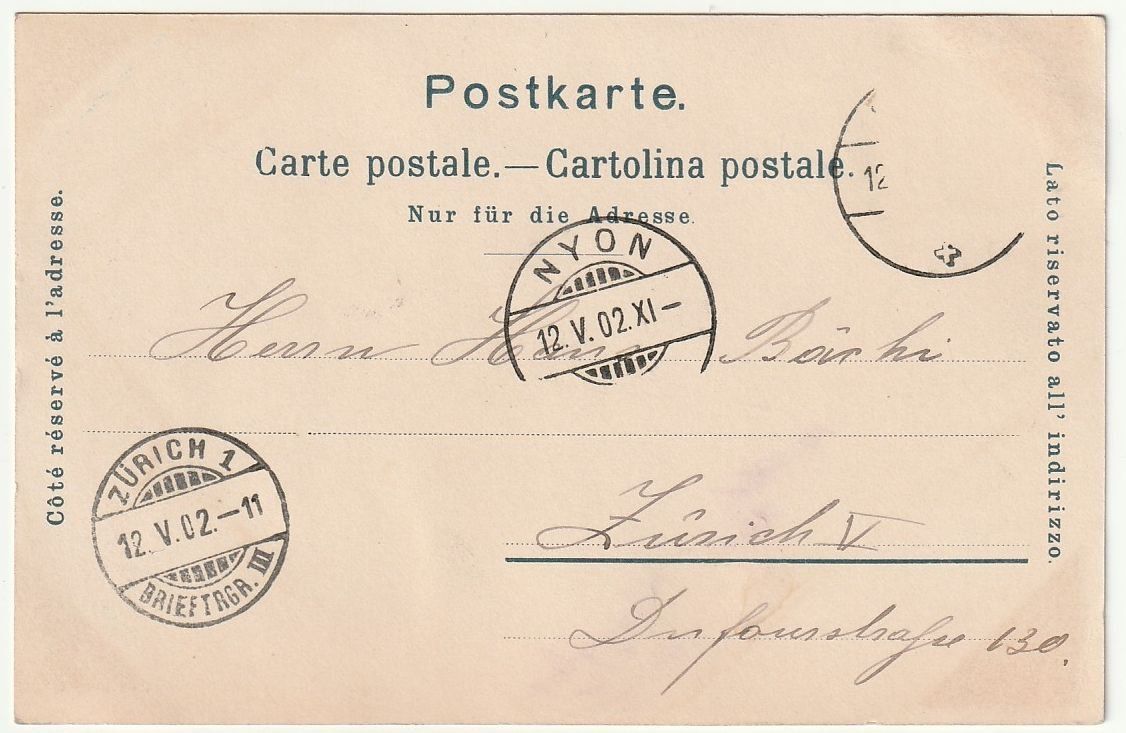 Postkarte.
Carte postale.—Cartolina postale.
Nur für die Adresse.
Côté réservé à l'adresse.
Lato riservato all' indirizzo.
12
NYON
12.V.02.XI–
Herrn Bärhi
ZÜRICH 1
12.V.02.–11
BRIEFTRGR. III
Zürich V
Dufourstraße 130.